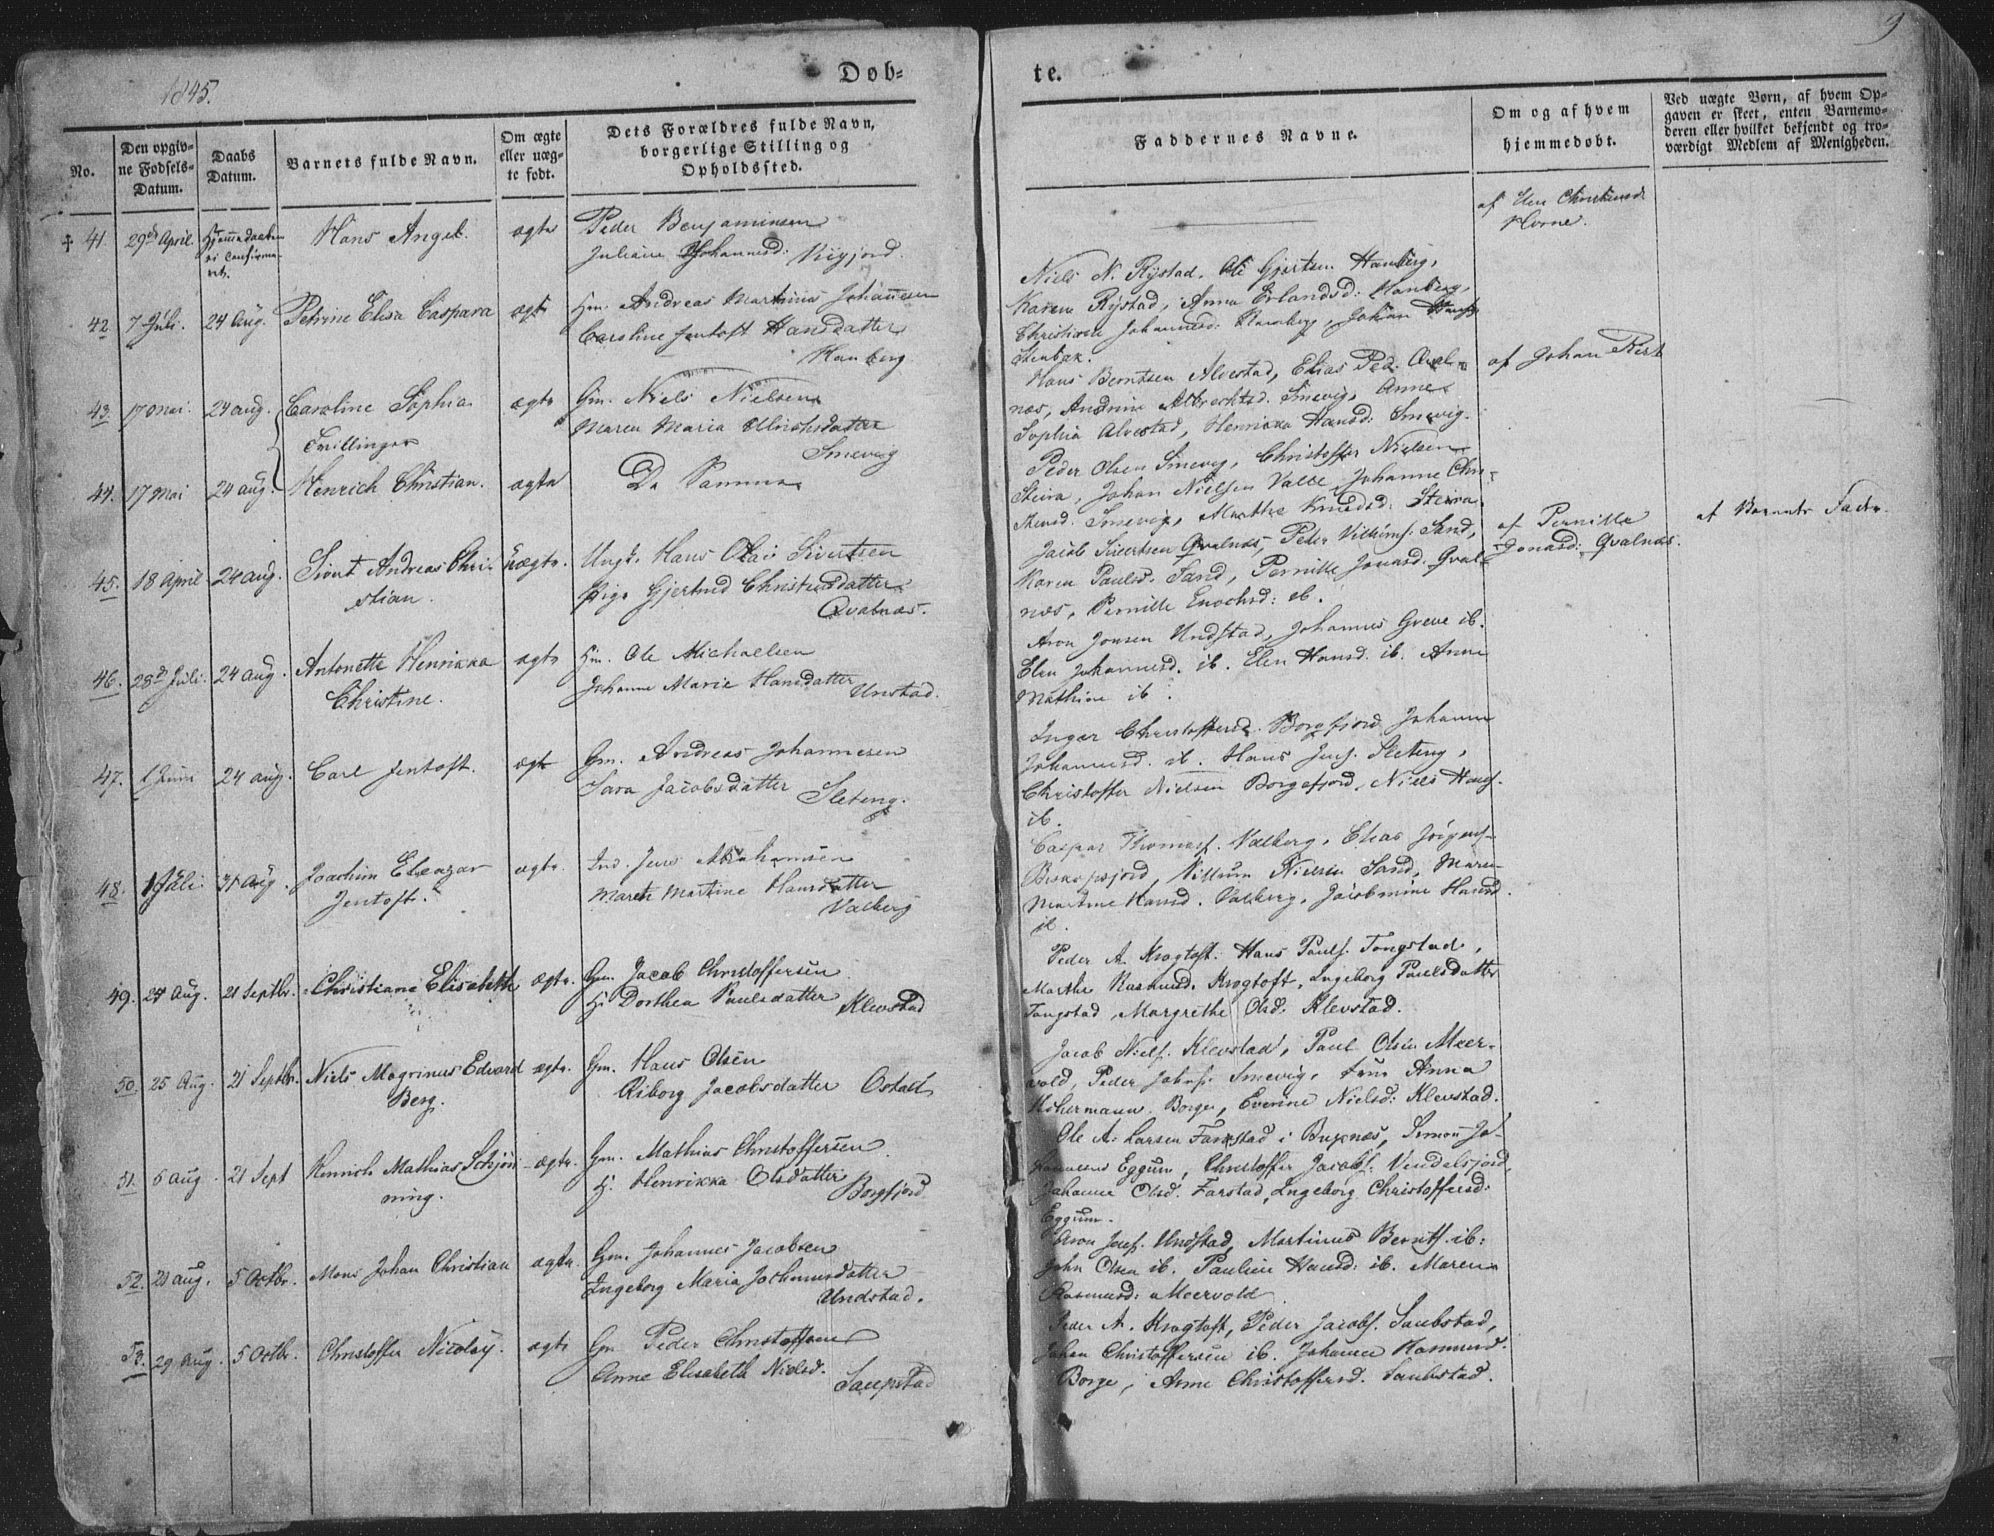 1845.
Døb-
te.
9
No.
Den opgiv-
ne Fødsels-
Datum.
Daabs
Datum.
Barnets fulde Navn.
Om ægte
eller uæg-
te født.
Dets Forældres fulde Navn,
borgerlige Stilling og
Opholdssted.
Faddernes Navne.
Om og af hvem
hjemmedøbt.
Ved uægte Børn, af hvem Op-
gaven er skeet, enten Barnemo-
deren eller hvilket bekjendt og tro-
værdigt Medlem af Menigheden.
† 41. 29de April. Hjemmedøbt
Hans Angel. ægte Peder Benjaminsen
Juliane Johannesd:
af Elen Christensd.
Horne.
42. 7 Juli. 24 Aug. Petrine Elisa Caspara ægte Hm. Andreas Martinus Johannesen
Caroline Jentoft Hansdatter
Hanberg
Niels N. Rystad, Ole Gjertsen Hanberg,
Karen Rystad, Anna Erlandsd: Hanberg,
Christiane Johannesd: Johan
Stenbak.
43. 17 Mai. 24 aug. Caroline Sophia ægte Gm. Niels Nielsen
Maren Maria Ulrichsdatter
Smevig
Tvillinger
Hans Berntsen Alvestad, Elias Ped.
næs, Andrine Albrechtsd. Smevig, Anne
Sophia Alvestad, Henrikka Hansd: Smevig.
af Johan
44. 17 Mai 24 aug. Henrich Christian. ægte De Samme
Peder Olsen Smevig, Christoffer Nielsen
Steira, Johan Nielsen Valle, Johanne Chri-
stensd. Smevig, Marthe Knudsd: Steira.
45. 18 April 24 aug. Sivert Andreas Chri-
stian. uægte. Ungk. Hans Olai Sivertsen
Pige Gjertrud Christensdatter
Qvalnæs.
Jacob Sivertsen Qvalnæs, Peter Villums. Sand,
Karen Paulsd. Sand, Pernille Jonasd. Qval-
næs, Pernille Enochsd: ib.
af Pernille
Jonasd: Qvalnæs.
af Barnets Fader.
46. 28de Juli. 24 aug. Antonette Henrikka
Christine. ægte Hm. Ole Michaelsen
Johanne Marie Hansdatter
Unstad.
Aron Jonsen Undstad, Johannes Greve ib.
Elen Johannesd. ib. Elen Hansd. ib. Anne
Mathine ib.
47. 1 Juni 24 aug. Carl Jentoft. ægte Gm. Andreas Johannesen
Sara Jacobsdatter Sleteng.
Inger Christoffersd. Borgfjord, Johanne
Johannesd. ib. Hans Jensf. Sleteng,
Christoffer Nielsen Borgefjord, Niels Hansf.
ib.
48. 1 Juli. 31 Aug. Joachim Eleazar
Jentoft. ægte. Ind. Jens Abrahamsen
Mareth Martine Hansdatter
Valberg
Caspar Thomesf. Valberg, Elias Jörgensf.
Villum Nielsen Sand, Maren
Martine Hansd. Valberg, Jacobmine Hansd.
ib.
49. 24 Aug. 21 Septbr. Christiane Elisabeth ægte. Gm. Jacob Christoffersen
H. Dorthea Paulsdatter Klevstad
Peder A. Krogtoft. Hans Paulf. Tangstad,
Marthe Rasmusd. Krogtoft, Ingeborg Paulsdatter
Tangstad, Margrethe Olsd. Klevstad.
50. 25 Aug. 21 Septbr. Niels Magrinus Edvard
Berg. ægte. Gm. Hans Olsen
Riborg Jacobsdatter Ostad
Jacob Nielsf. Klevstad, Paul Olsen Meer-
vold, Peder Johnsf. Smevig, Anna
Borge, Everine Nielsd: Klevstad.
51. 6 Aug. 21 Sept Henrich Mathias Schjön-
ning. ægte. Gm. Mathias Christoffersen
H. Henrikka Olsdatter Borgfjord
Ole A. Larsen Farstad i Buxnæs, Simon Jo-
hannesens Eggum, Christoffer Jacobsf. Vendelsfjord,
Johanne Olsd. Farstad, Ingeborg Christoffersd:
Eggum.
52. 21 aug. 5 Octbr. Mons Johan Christian ægte. Gm. Johannes Jacobsen
Ingeborg Maria Jochumsdatter
Undstad.
Aron Jensf. Undstad, Martinus Berntf. ib:
John Olsen ib. Pauline Hansd: ib. Maren
Rasmusd: Meervold.
53. 29 Aug. 5 Octbr. Christoffer Nicolay. ægte Gm Peder Christoffersen
Anne Elisabeth Nielsd. Saupstad
Peder A. Krogtoft, Peder Jacobsf. Saubstad,
Johan Christoffersen ib. Johanne Rasmusd.
Borge, Anne Christoffersd. Saubstad.